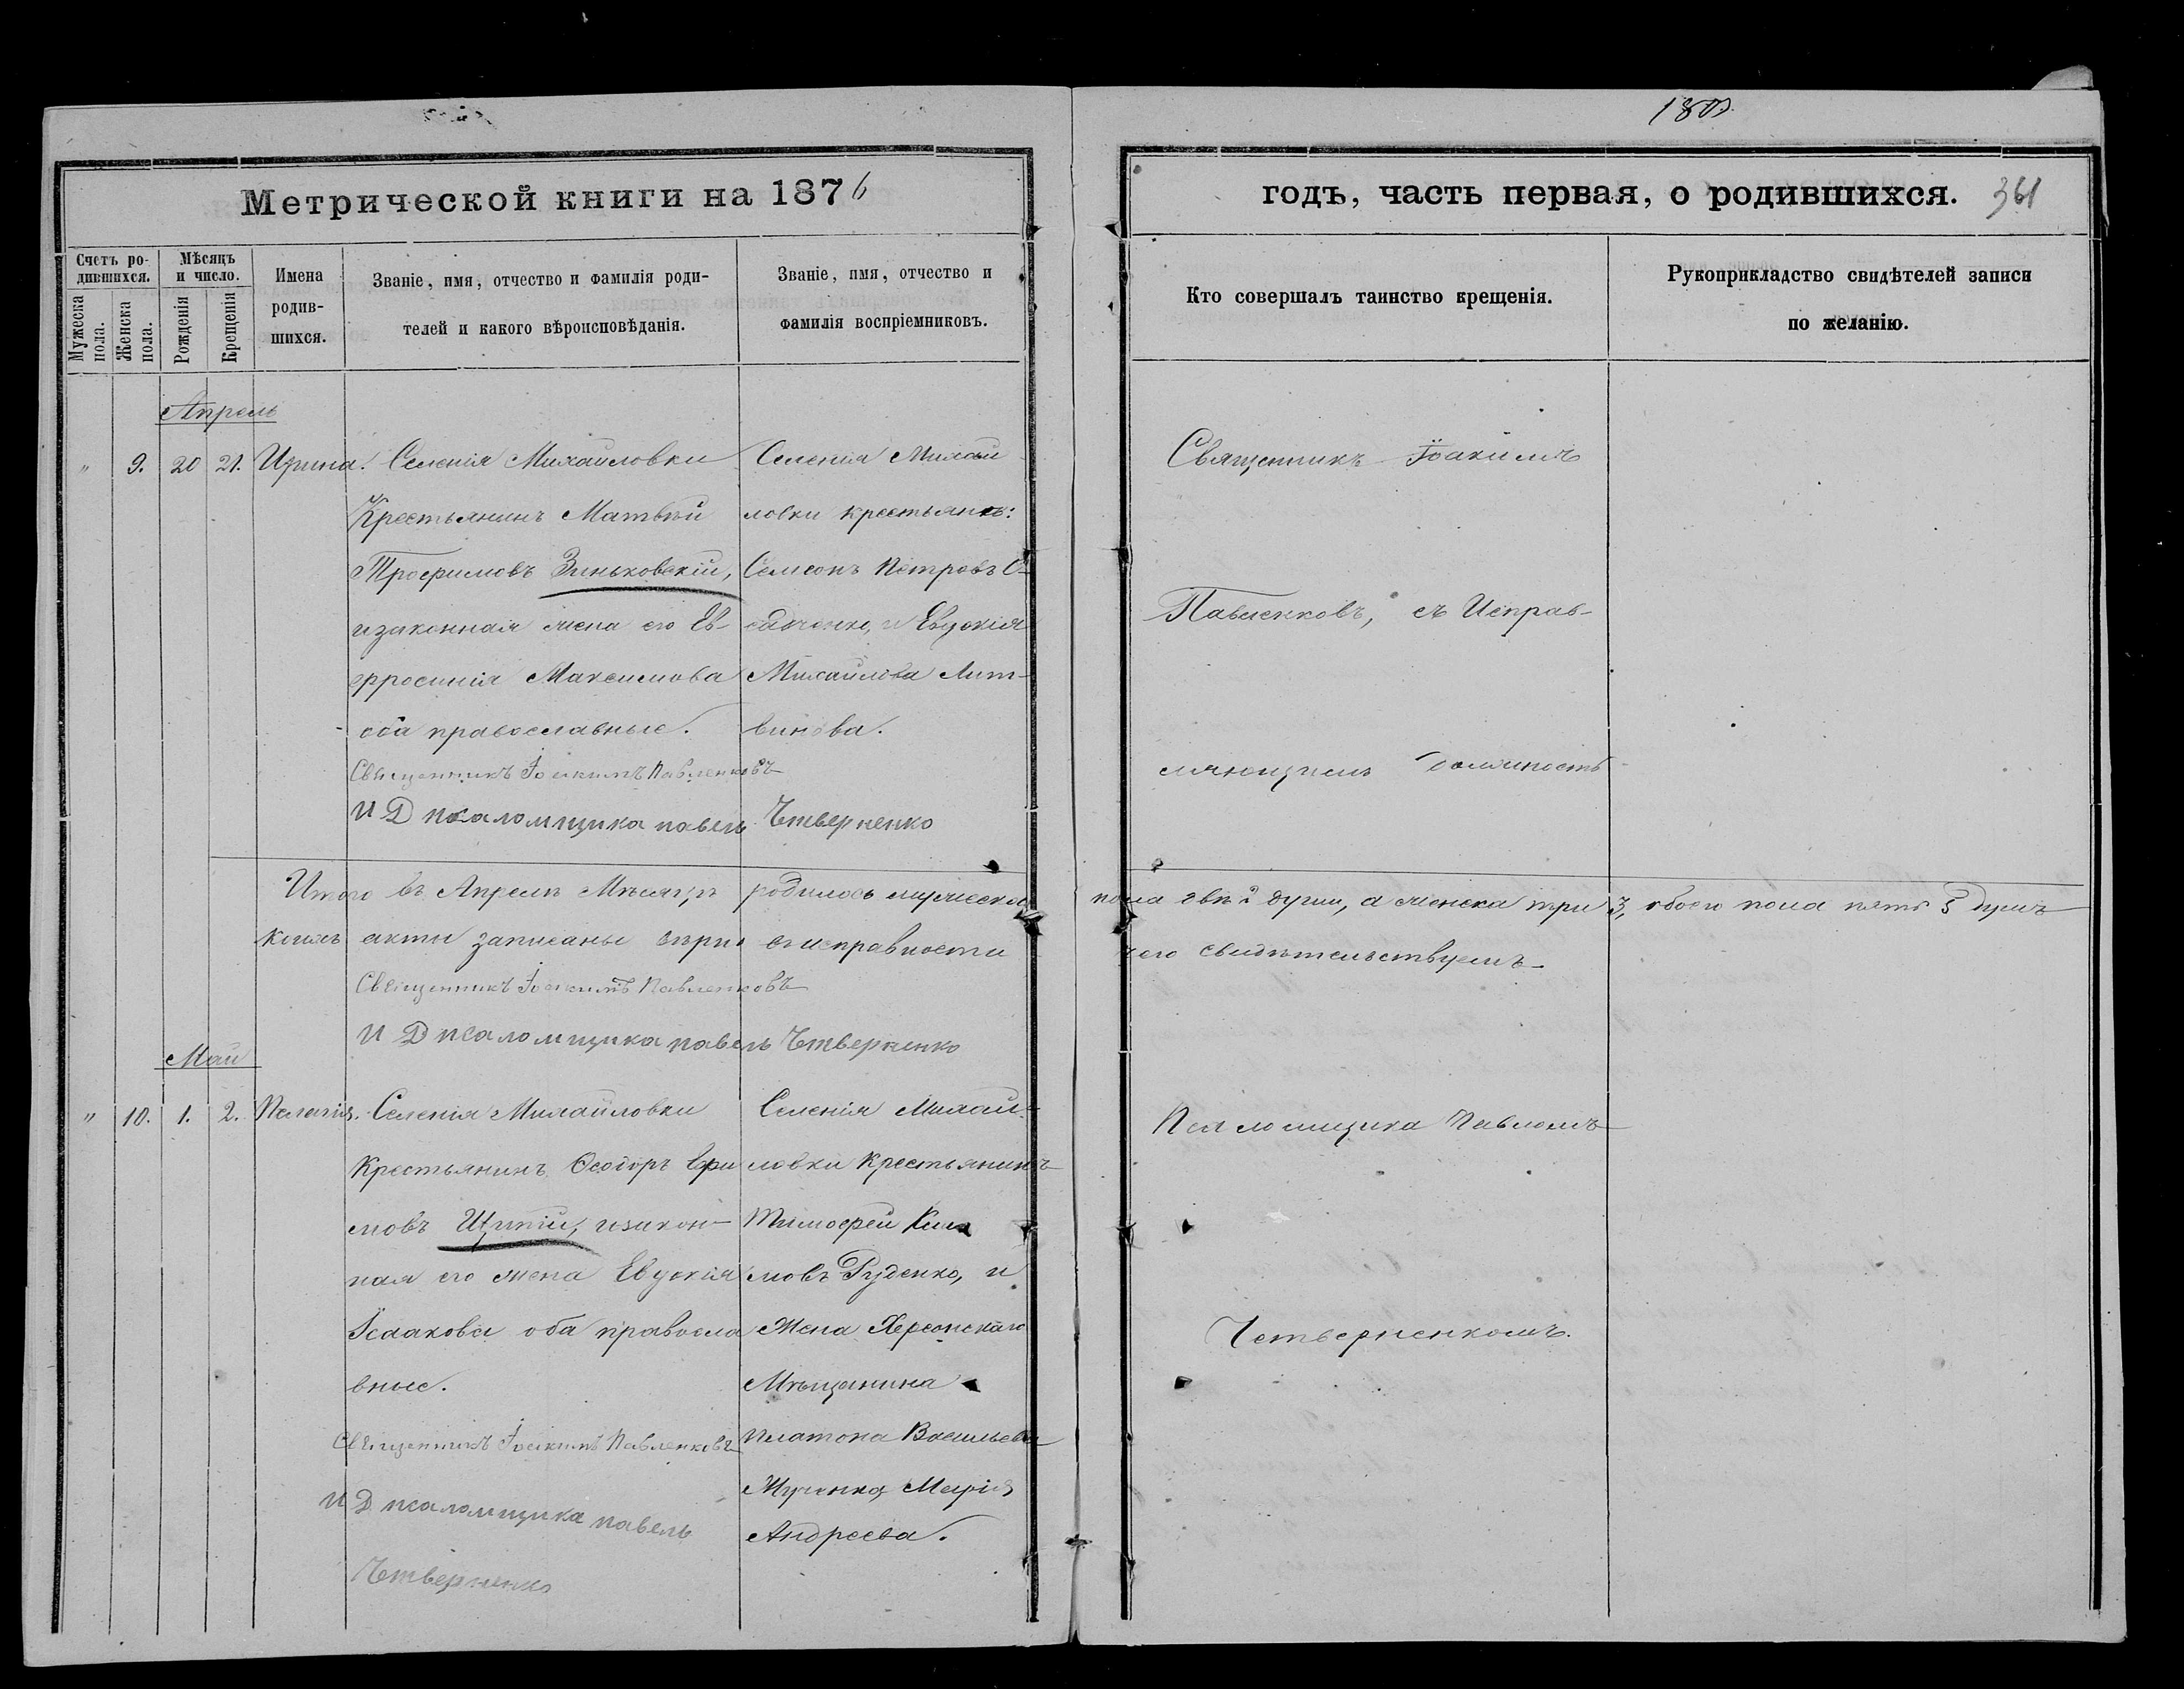 180
Метрической книги на 1876
годъ, часть первая, о родившихся. 361
Счетъ родившихся.
Мужеска пола.
Женска пола.
Мѣсяцъ и число.
Рожденія
Крещенія
Имена родившихся.
Званіе, имя, отчество и фамилія роди-
телей и какого вѣроисповѣданія.
Званіе, имя, отчество и
фамилія воспріемниковъ.
Кто совершалъ таинство крещенія.
Рукоприкладство свидѣтелей записи
по желанію.
Апрель
" 9. 20 21. Ирина. Селенія Михайловки
Крестьянинъ Матвѣй
Трофимовъ Зиньковскій,
и законная жена его Ев-
фросинія Максимова
оба православные.
Священникъ Іоакимъ Павленковъ
И Д псаломщика павелъ Чтверненко
Селенія Михай
ловки крестьяне:
Семеонъ Петровъ
и Евдокія
Михайлова Лит-
винова.
Священникъ Іоакимъ
Павленковъ, съ Исправ-
ляющимъ должность
Итого въ Апрелѣ Мѣсяцѣ родилось мужеска пола двѣ 2 души, а женска три 3, обоего пола пять 5 душъ
коихъ акты записаны вѣрно въ исправности чего свидѣтельствуемъ.
Священникъ Іоакимъ Павленковъ
И Д псаломщика павелъ Чтверненко
Май
" 10. 1. 2. Пелагія. Селенія Михайловки
Крестьянинъ Ѳеодоръ Ефи
мовъ Щипій, и закон-
ная его жена Евдокія
Ісаакова оба правосла
вные.
Священникъ Іоакимъ Павленковъ
И Д псаломщика павелъ
Чтверненко
Селенія Михай-
ловки Крестьянинъ
Тимофей Кли
мовъ Руденко, и
Жена Херсонскаго
Мѣщанина
Платона Васильева
Марія
Андреева.
Псаломщика Павломъ
Четверненкомъ.